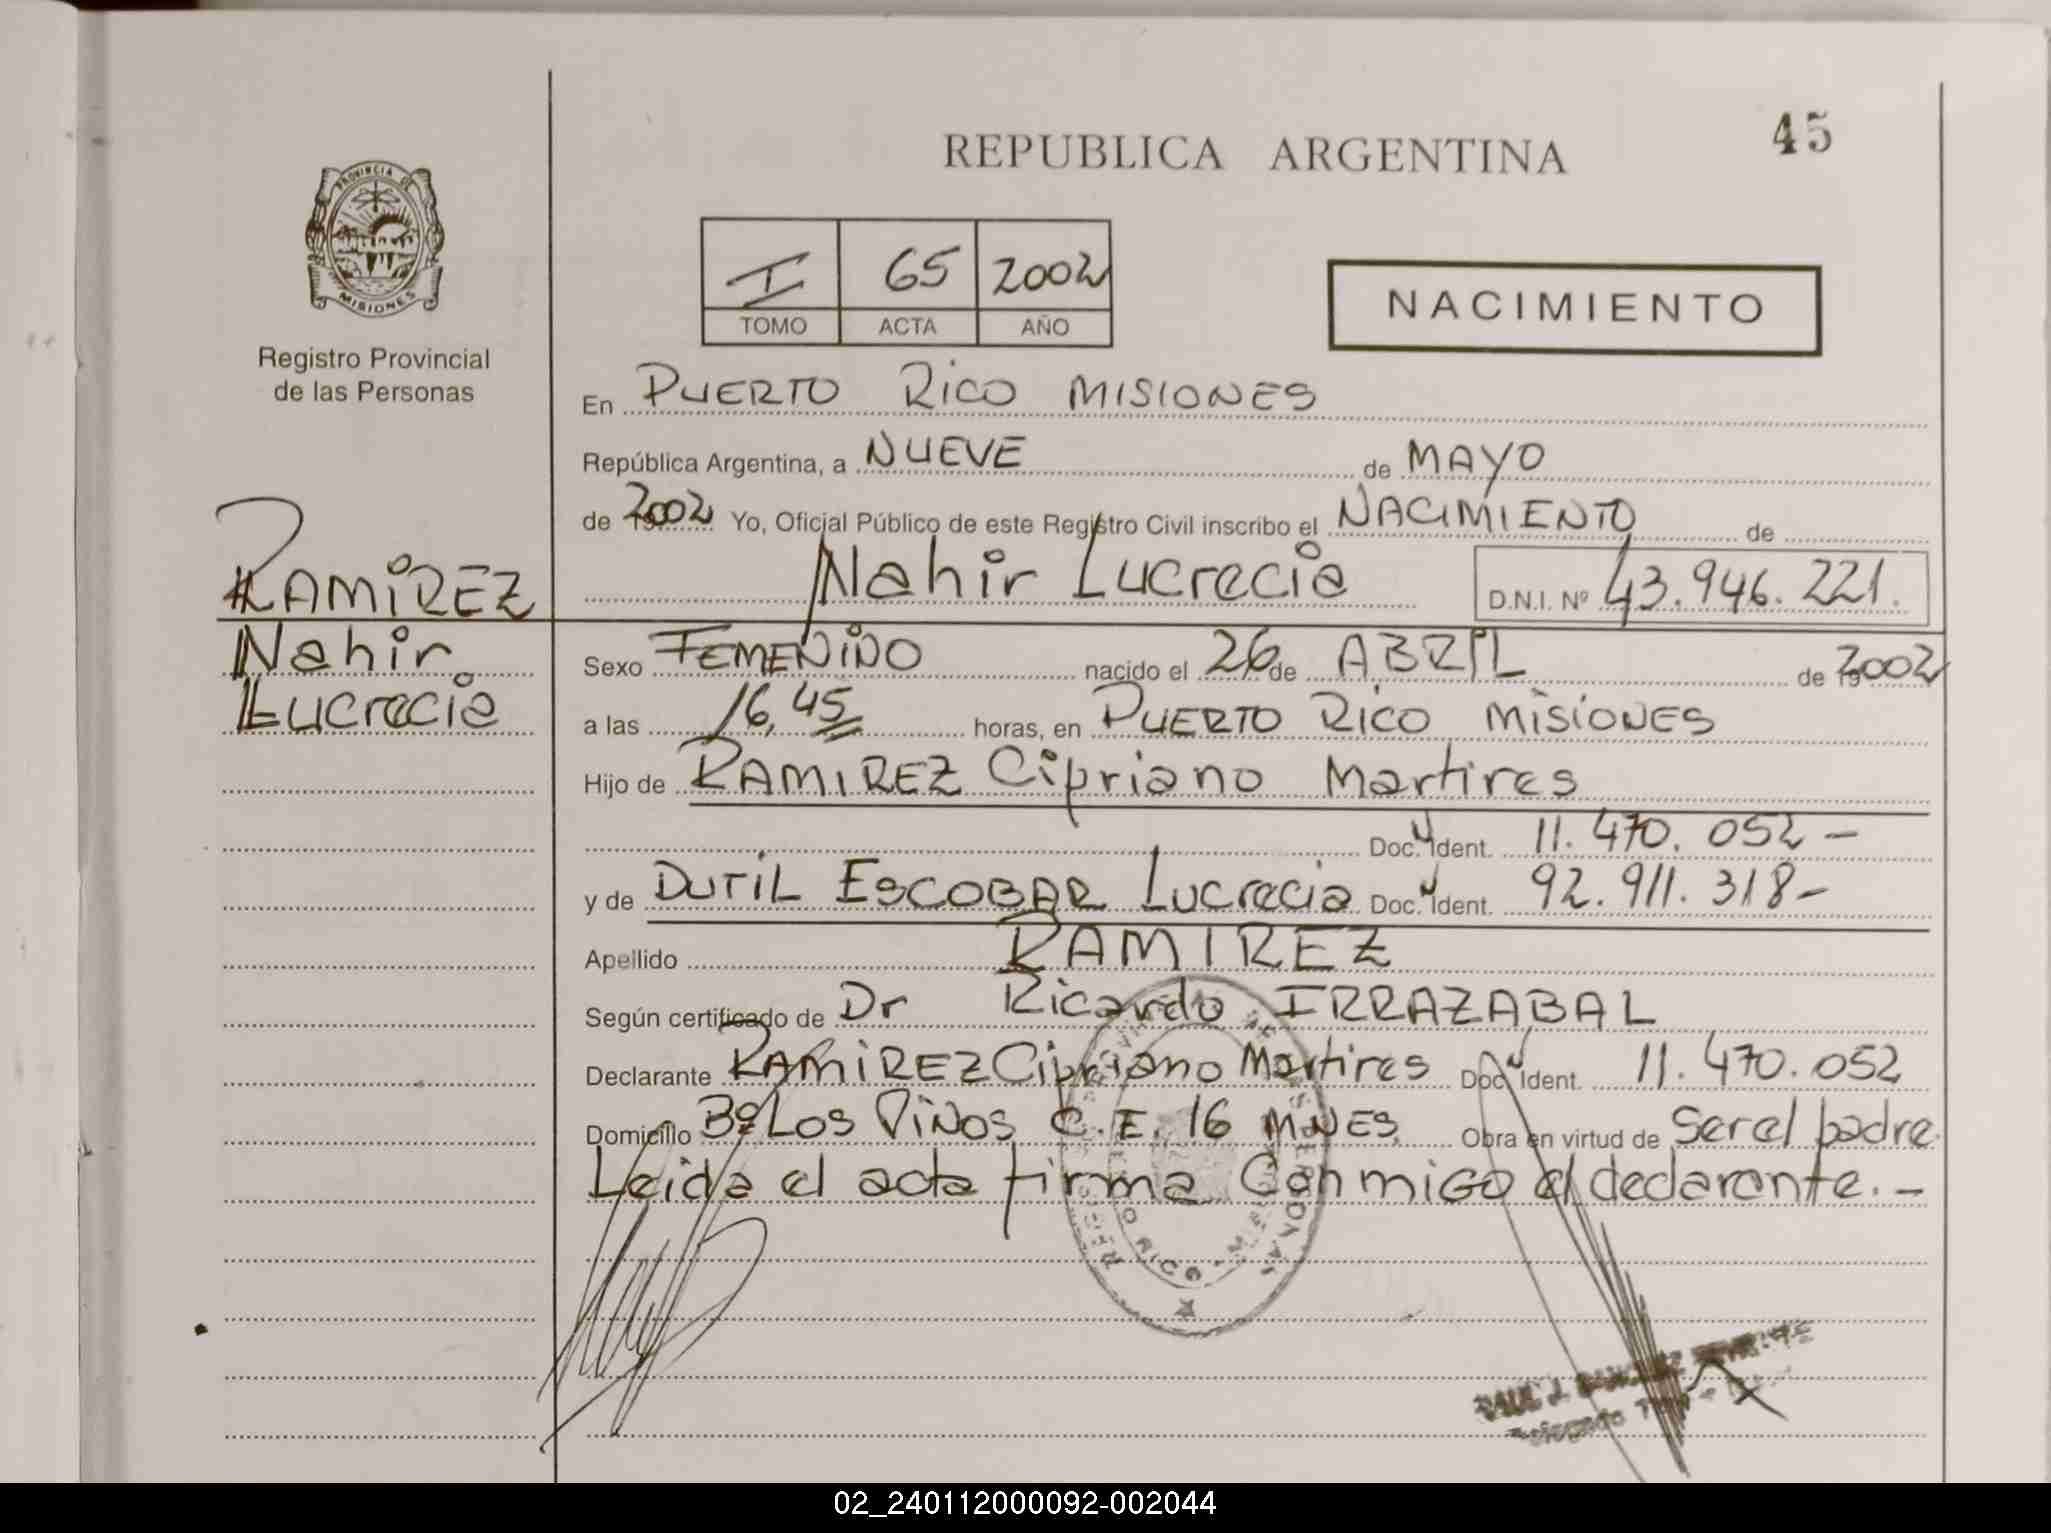 REPUBLICA ARGENTINA
45
PROVINCIA DE
MISIONES
Registro Provincial
de las Personas
I 65 2002
TOMO ACTA AÑO
NACIMIENTO
En PUERTO RICO MISIONES
República Argentina, a NUEVE de MAYO
de 2002 Yo, Oficial Público de este Registro Civil inscribo el NACIMIENTO de
Nahir Lucrecia D.N.I. Nº 43.946.221.
RAMIREZ
Nahir
Lucrecia
Sexo FEMENINO nacido el 26 de ABRIL de 2002
a las 16,45 horas, en PUERTO RICO MISIONES
Hijo de RAMIREZ Cipriano Martires
Doc. Ident. 11.470.052-
y de DUTIL ESCOBAR Lucrecia Doc. Ident. 92.911.318-
Apellido RAMIREZ
Según certificado de Dr Ricardo IRRAZABAL
Declarante RAMIREZ Cipriano Martires Doc. Ident. 11.470.052
Domicilio Bº LOS PINOS C.E. 16 MNES. Obra en virtud de Ser el padre.
Leida el acta firma Conmigo el declarante.-
RICO
02_240112000092-002044